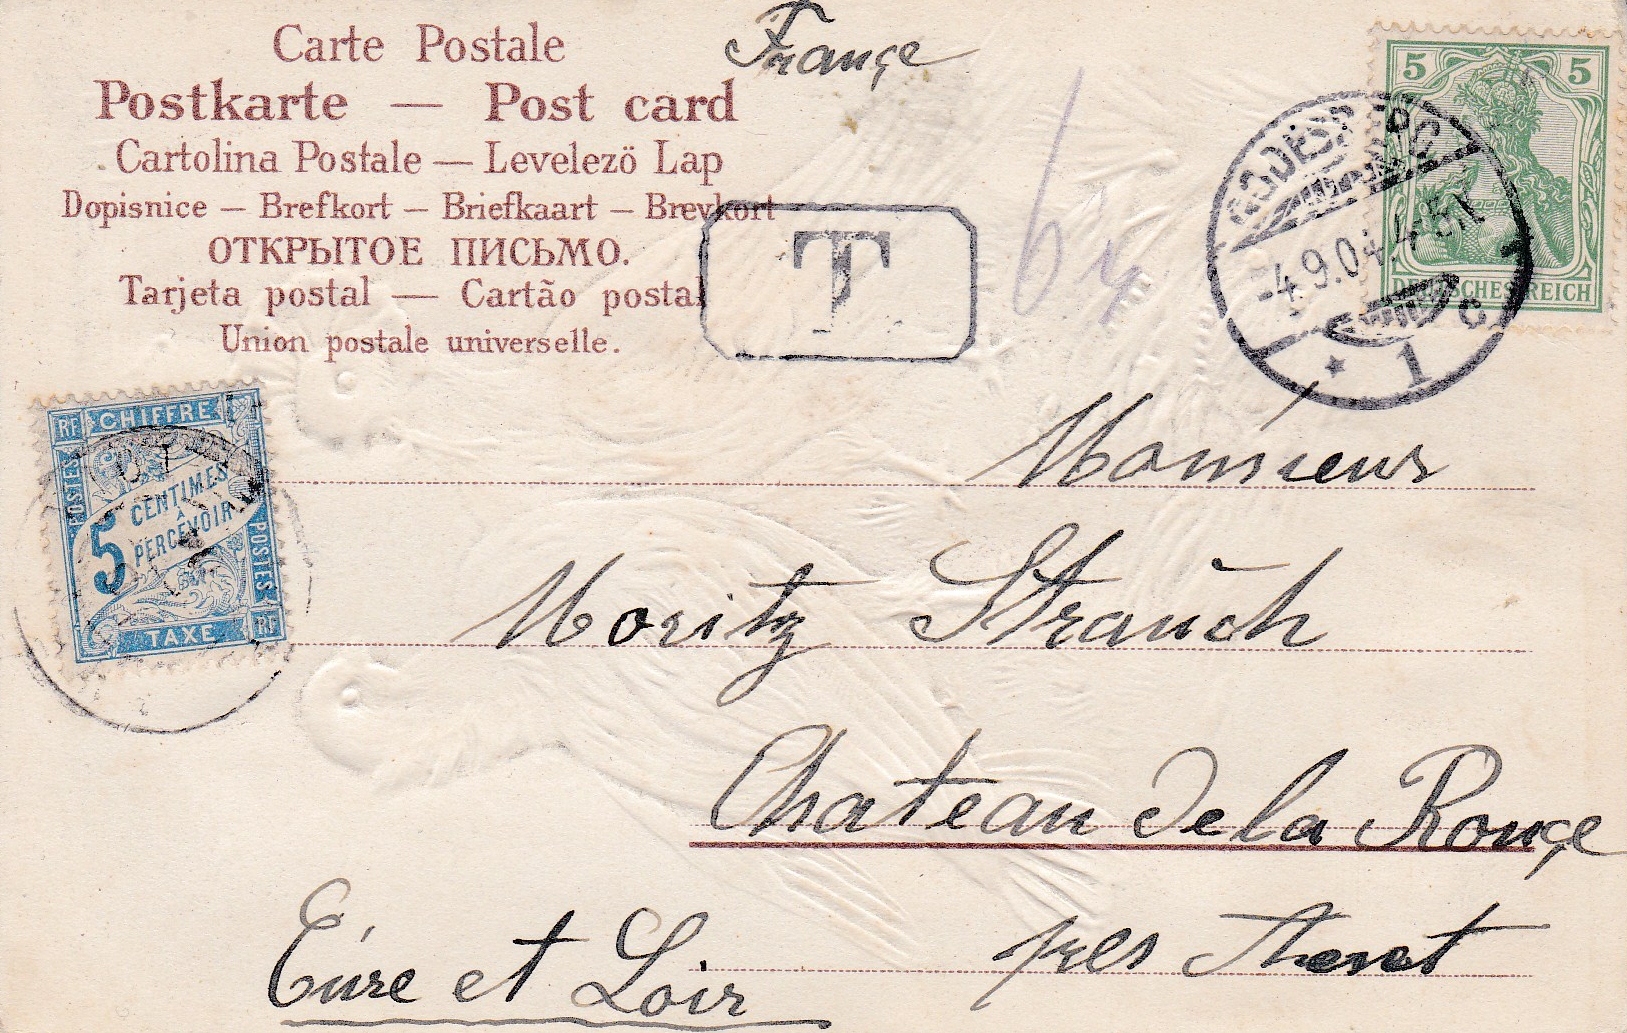 Carte Postale
Postkarte — Post card
Cartolina Postale — Levelezö Lap
Dopisnice – Brefkort – Briefkaart – Brevkort
ОТКРЫТОЕ ПИСЬМО.
Tarjeta postal — Cartão postal
Union postale universelle.
Françe
T
5 5
DEUTSCHES REICH
GODESBERG
-4.9.04. 4-5N.
* 1 c
RF CHIFFRE
POSTES
5 CENTIMES
A
PERCEVOIR
POSTES
TAXE RF
Monsieur
Moritz Strauch
Chateau de la Rouçe
près
Eure et Loir